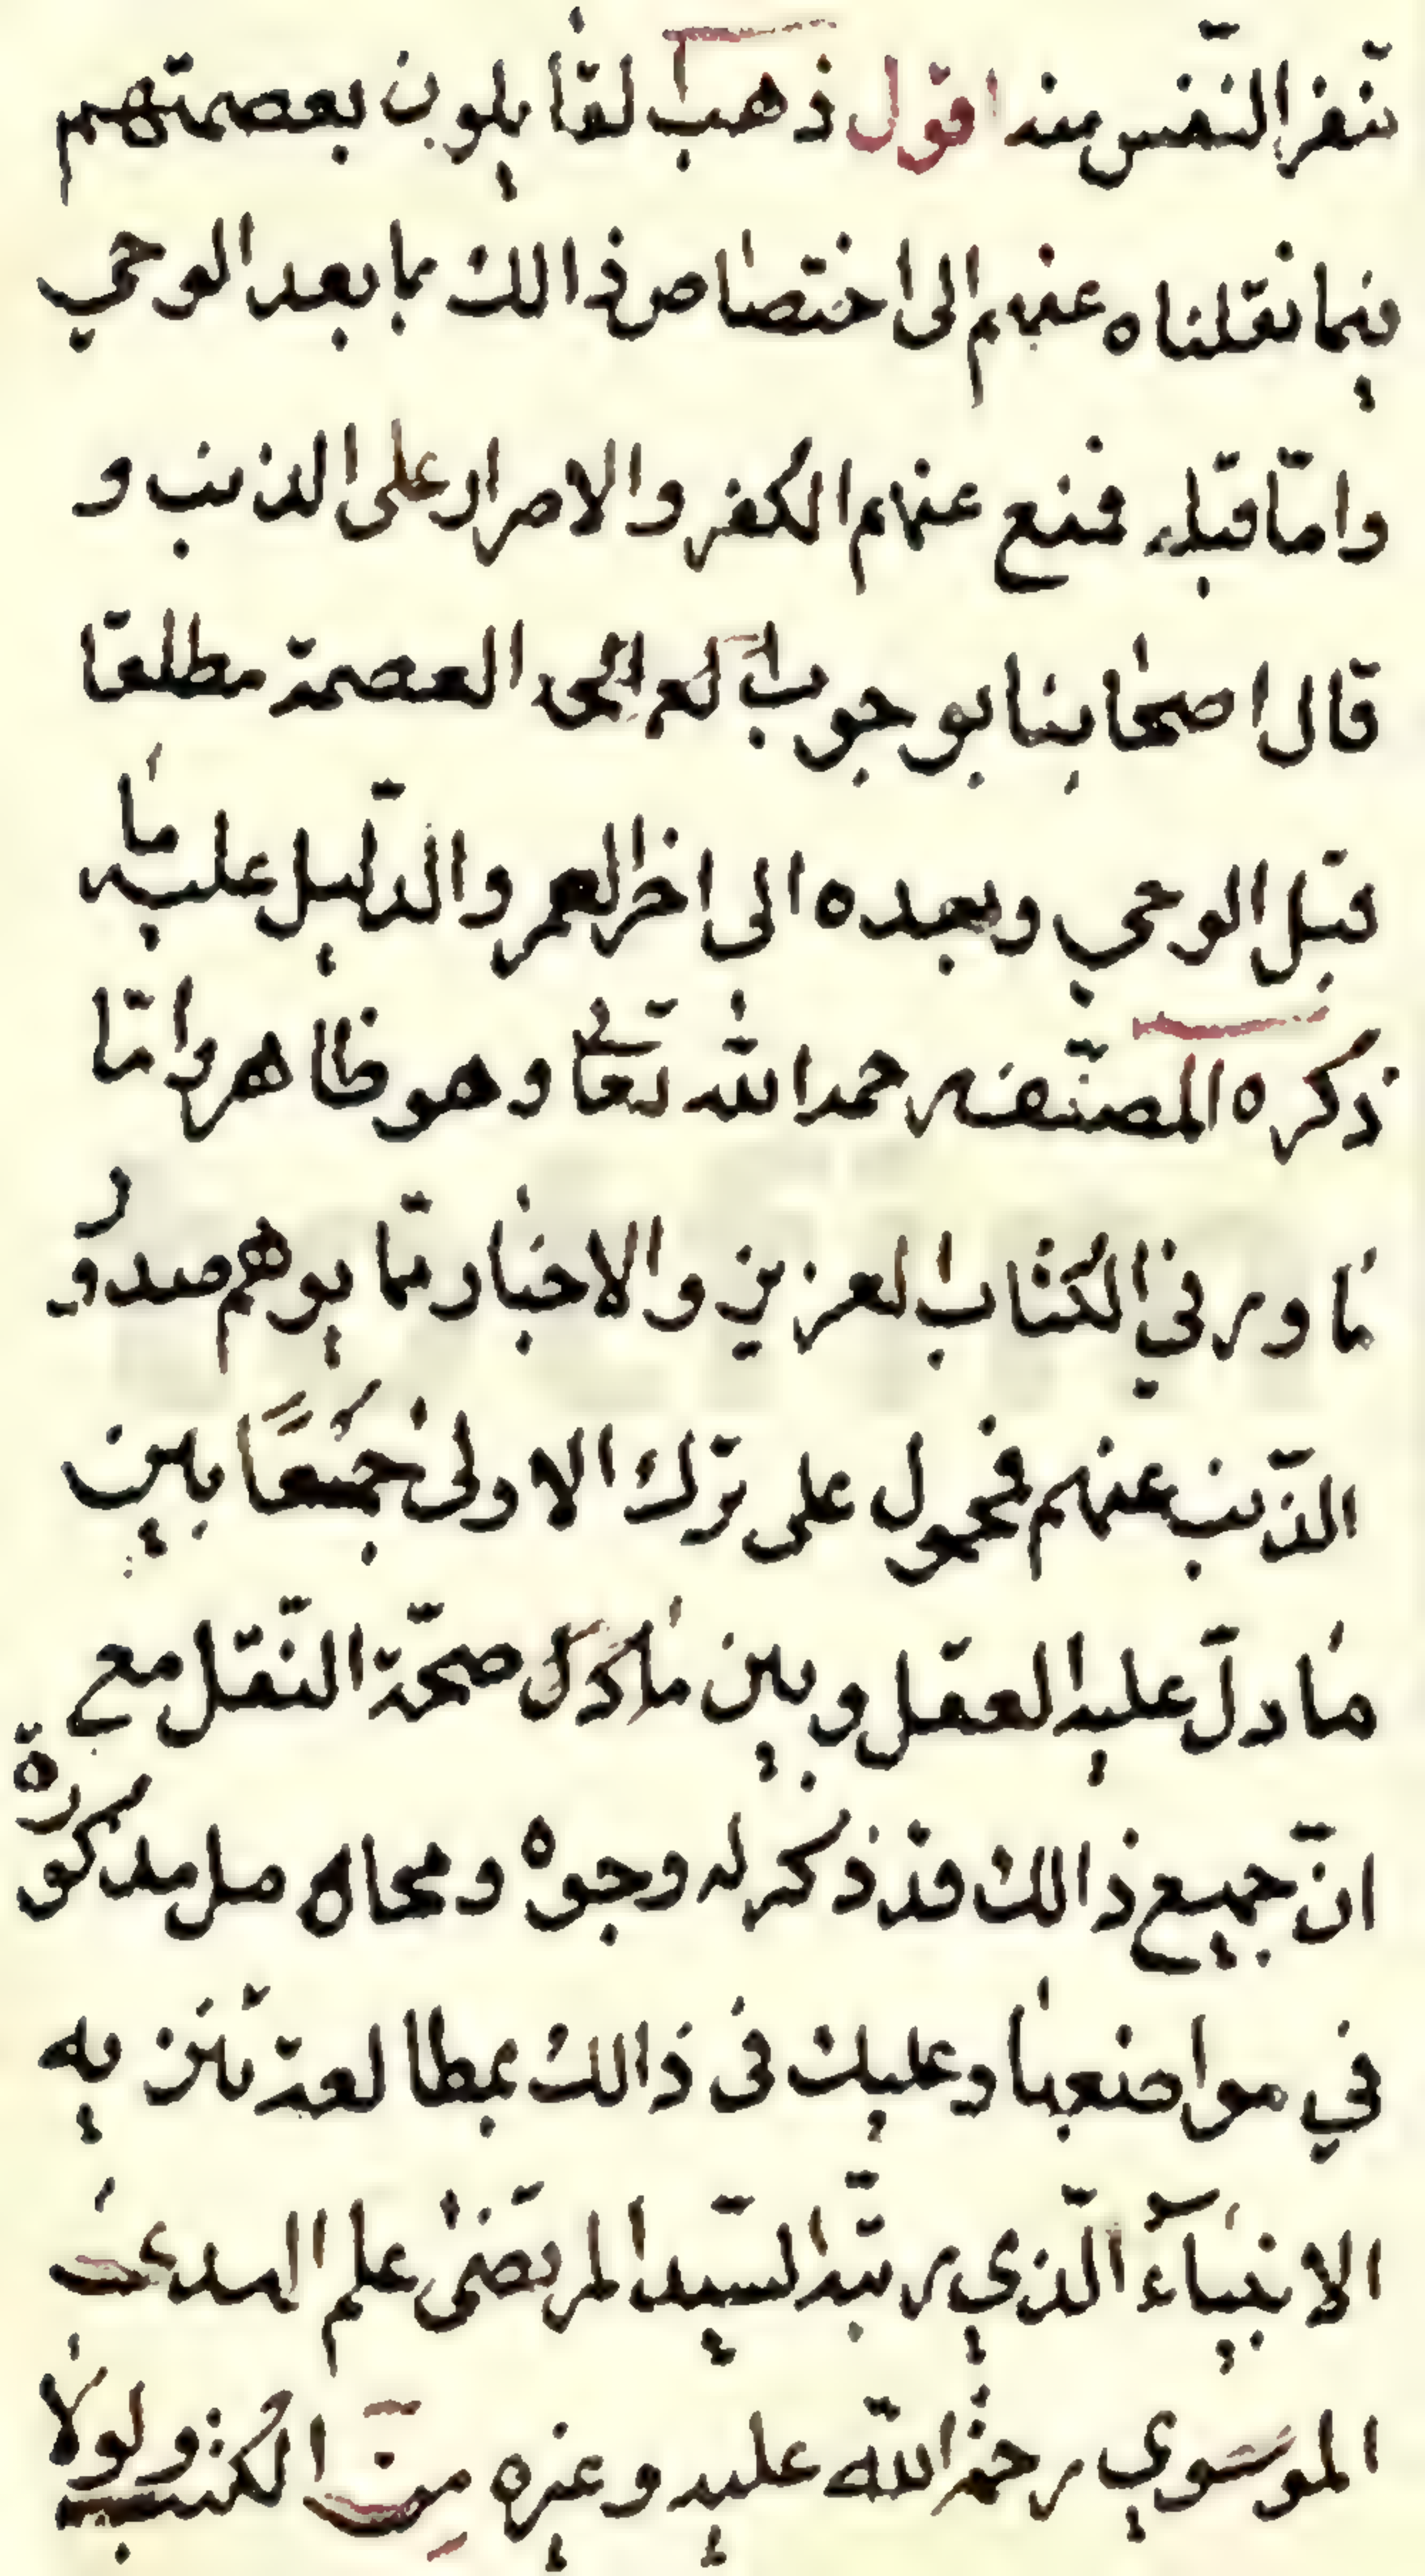 تنفر النّفس منه اقول ذهب القايلون بعصمتهم
فيما نقلناه عنهم الى اختصاص ذالك بما بعد الوحي
وامّا قبله فمنع عنهم الكفر والاصرار على الذنب و
قال اصحابنا بوجوب العصمة مطلقا
قبل الوحي وبعده الى اخر العمر والدّليل عليه ما
ذكره المصنّف رحمه الله تعالى وهو ظاهر وامّا
ما ورد في الكتاب العزيز والاخبار ممّا يوهم صدور
الذّنب عنهم فمحمول على ترك الاولى جمعًا بين
ما دلّ عليه العقل وبين ما دلّ صحّة النّقل مع
انّ جميع ذالك قد ذكر له وجوه ومحامل مذكورة
في مواضعها وعليك فى ذالك بمطالعة تنزيه
الانبيآء الّذي رتّبه السّيد المرتضى علم الهدى
الموسوي رحمة الله عليه وغيره من الكتب ولولا